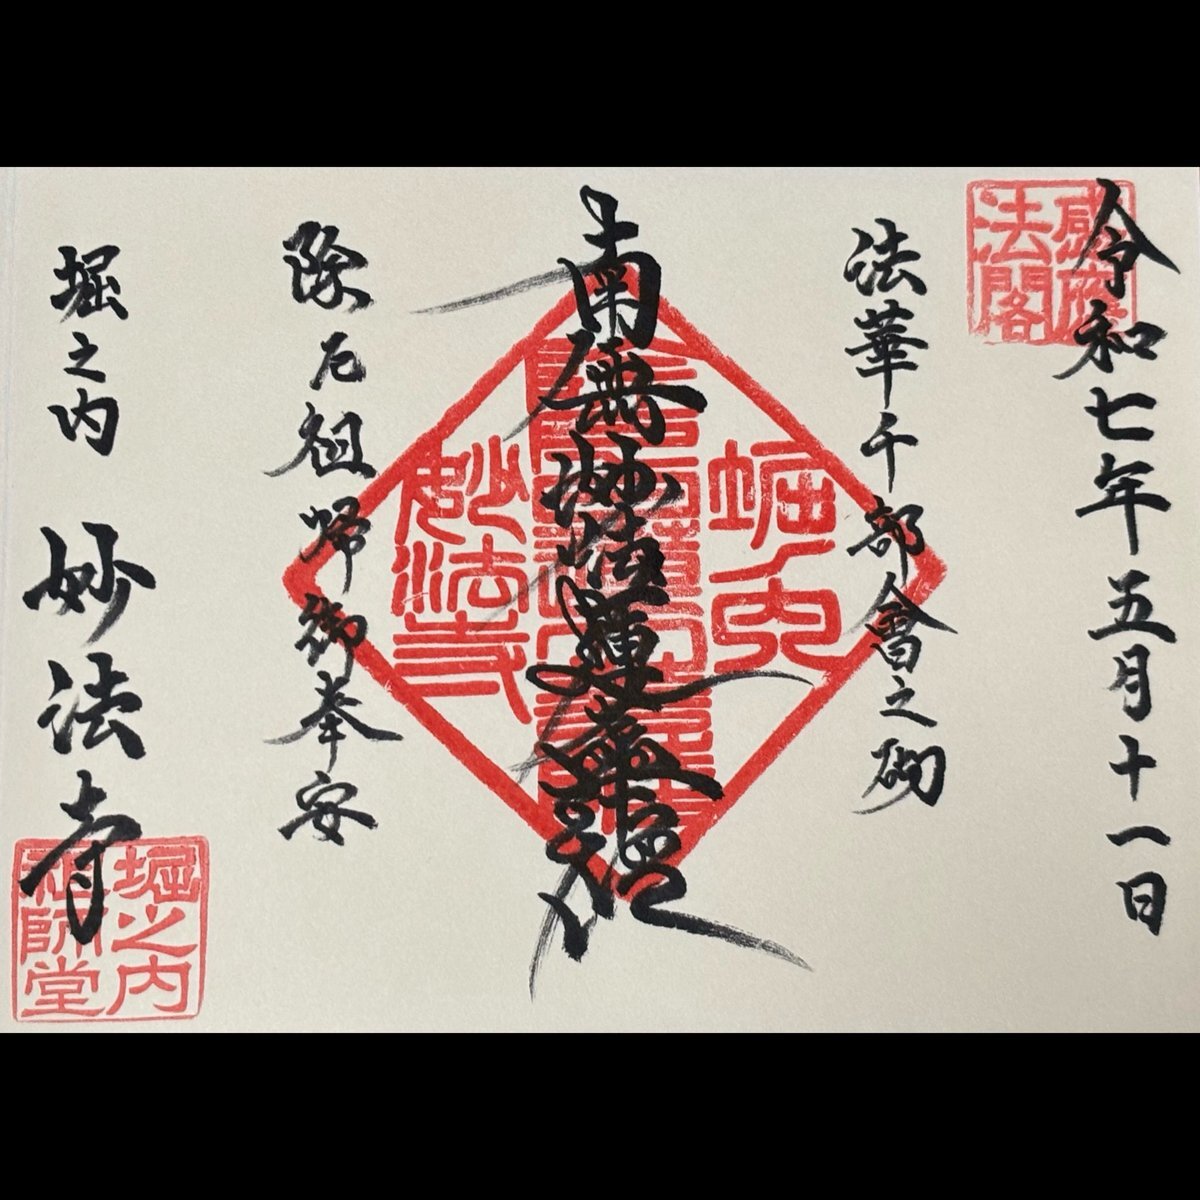 令和七年五月十一日
感應
法閣
法華千部會之砌
南無妙法蓮華經
堀之内
妙法寺
除厄祖師御奉安
堀之内 妙法寺
堀之内
祖師堂